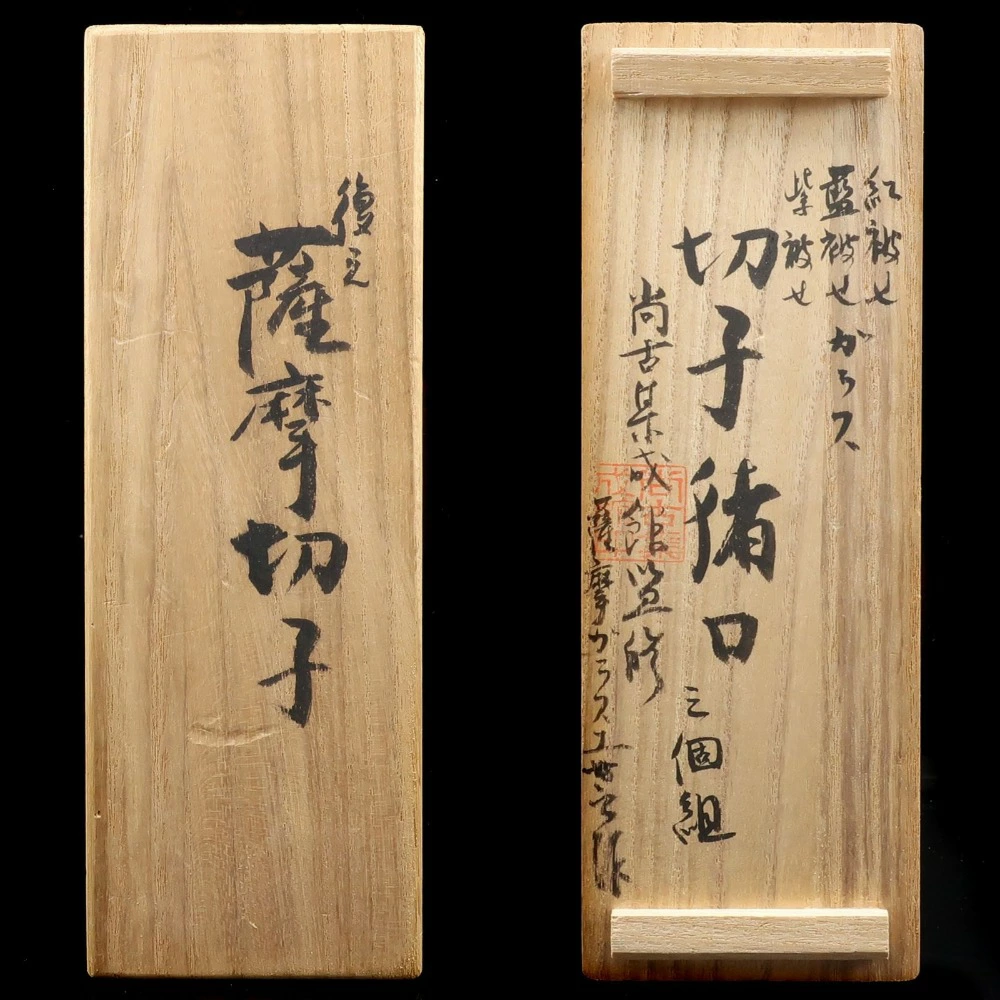 復元
薩摩切子
紅被せ
藍被せガラス
紫被せ
切子猪口
三個組
尚古集成館監修
薩摩ガラス工芸